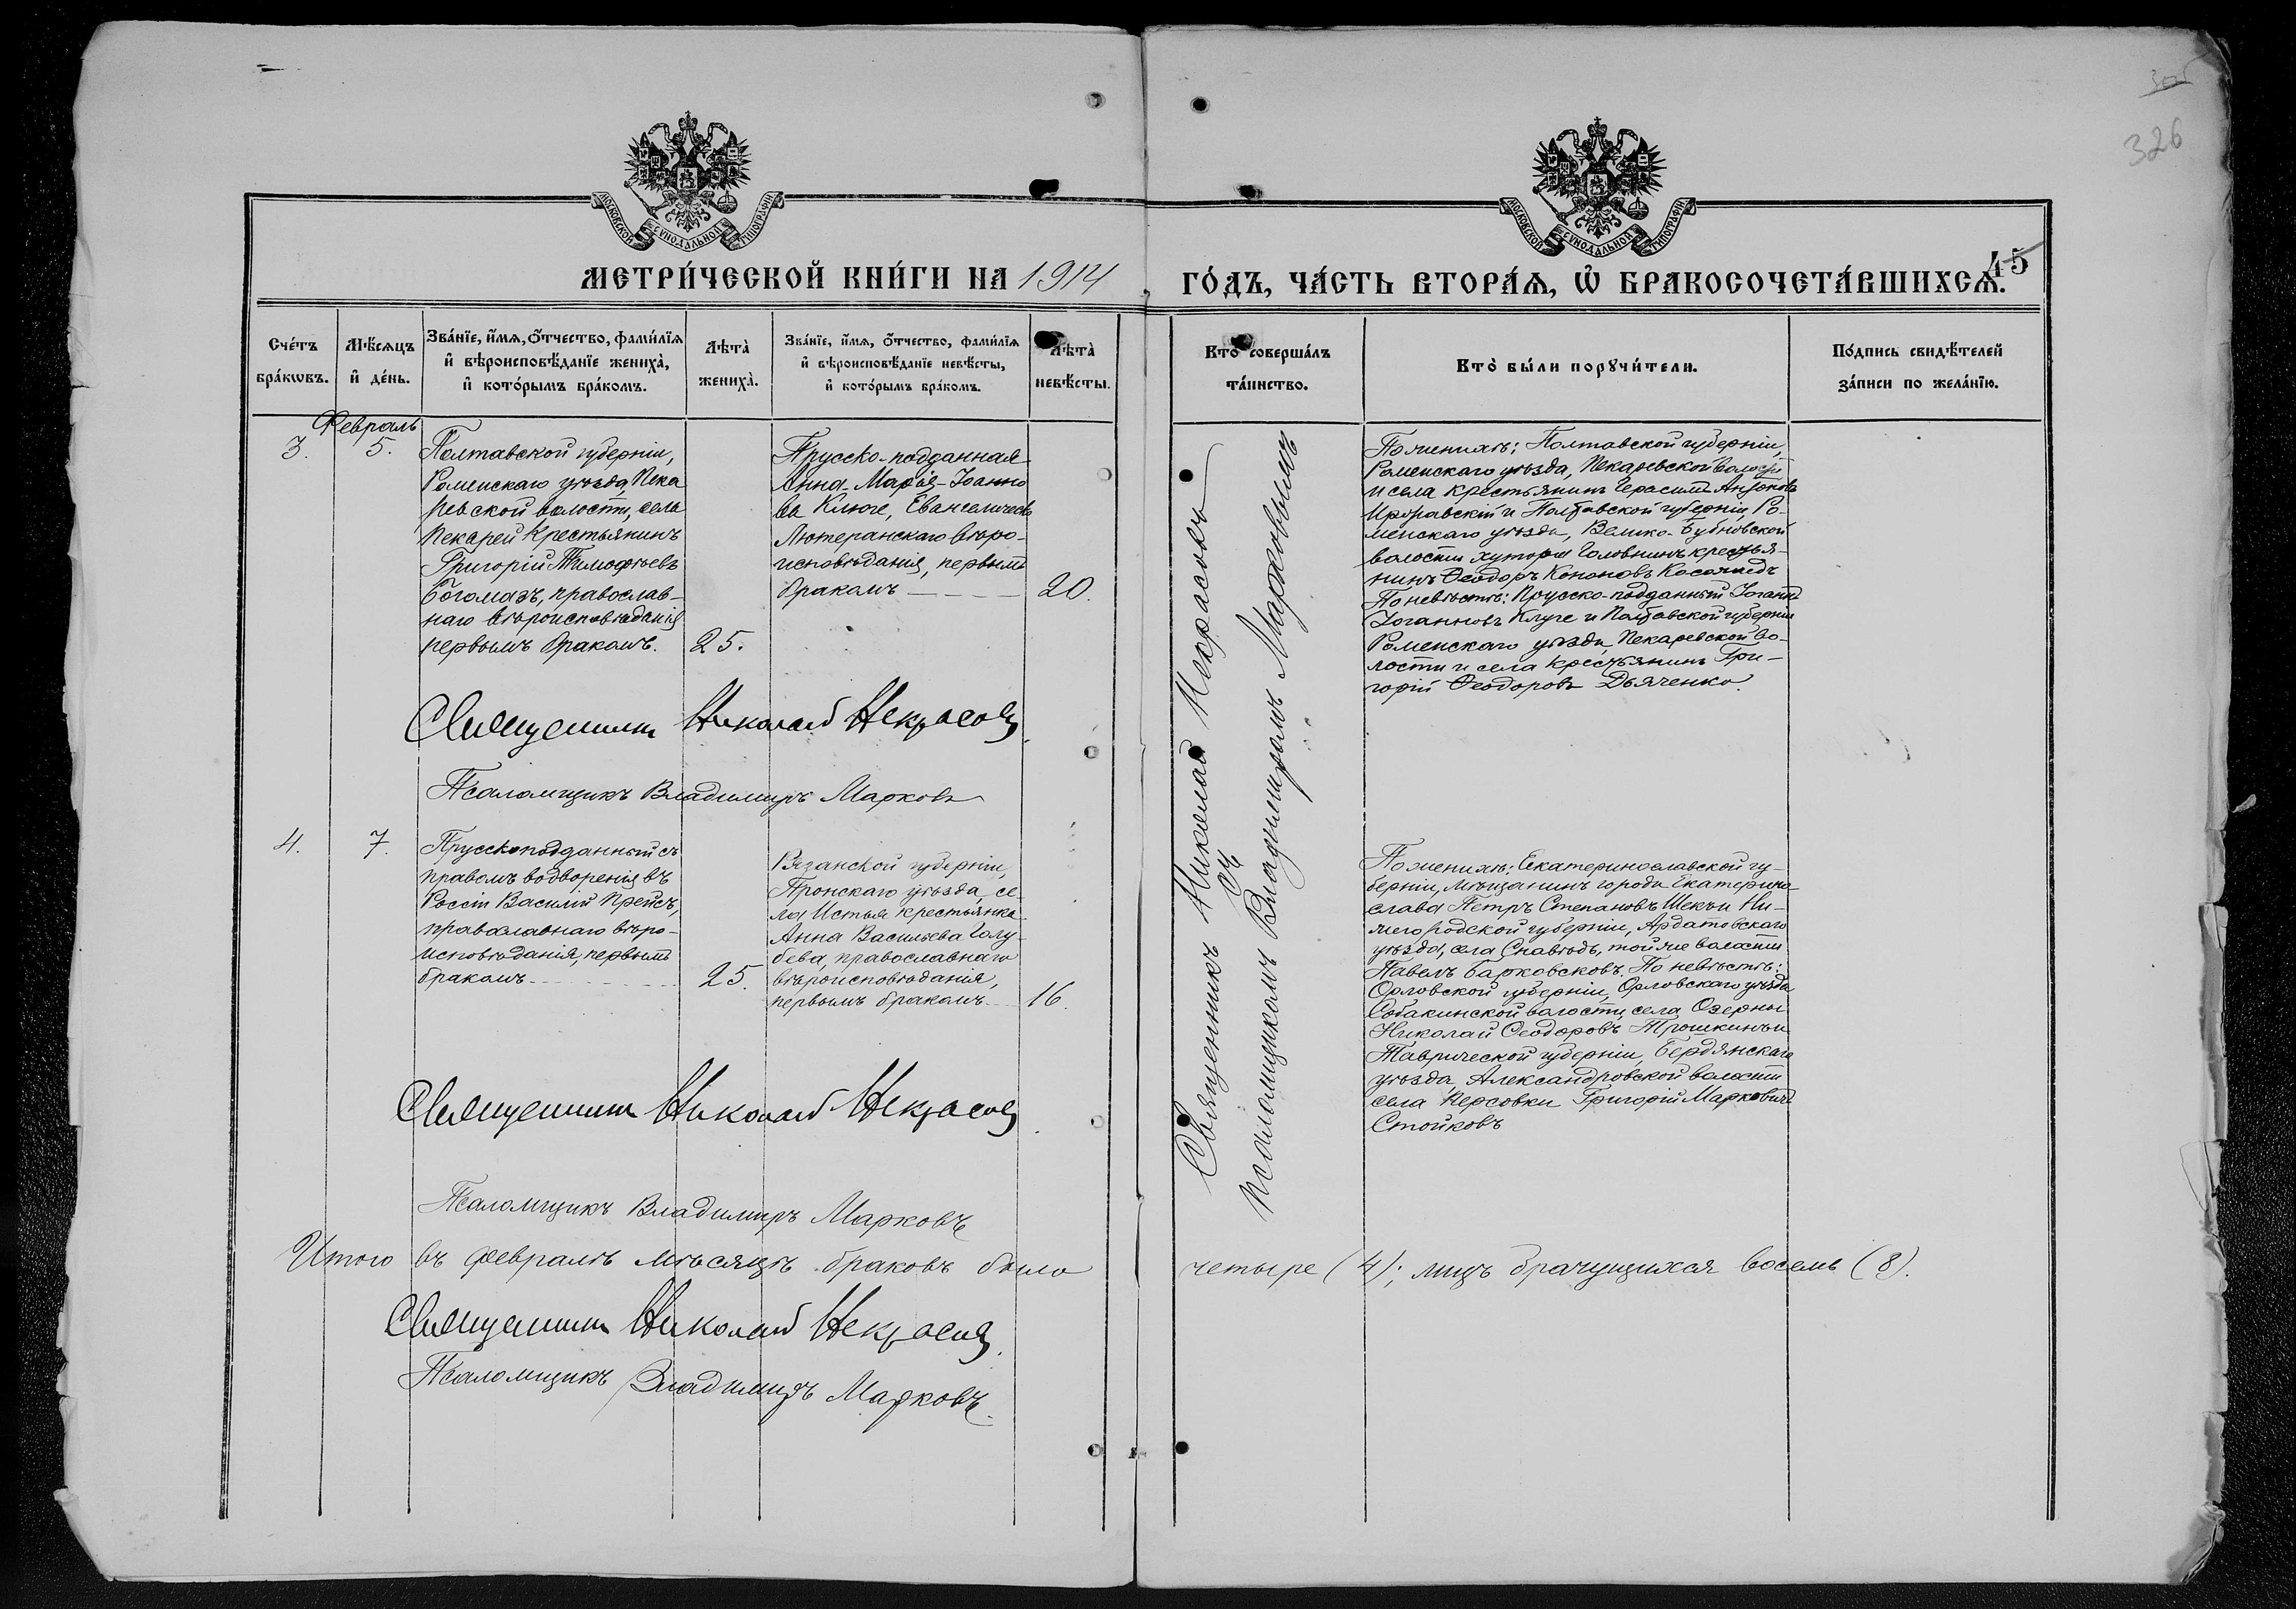 326
МОСКОВСКОЙ СѴНОДАЛЬНОЙ ТИПОГРАФІИ
МОСКОВСКОЙ СѴНОДАЛЬНОЙ ТИПОГРАФІИ
МЕТРИ́ЧЕСКОЙ КНИ́ГИ НА 1914 ГО́ДЪ, ЧА́СТЬ ВТОРА́Ѧ, Ѡ҆ БРАКОСОЧЕТА́ВШИХСѦ.
45
Сче́тъ
бра́кѡвъ.
Мѣ́сѧцъ
и҆ де́нь.
Зва́нїе, и҆́мѧ, ѻ҆́тчество, фами́лїѧ
и҆ вѣроисповѣ́данїе жениха̀,
и҆ кото́рымъ бра́комъ.
Лѣта̀
жениха̀.
Зва́нїе, и҆́мѧ, ѻ҆́тчество, фами́лїѧ
и҆ вѣроисповѣ́данїе невѣ́сты,
и҆ кото́рымъ бра́комъ.
Лѣта̀
невѣ́сты.
Кто̀ соверша́лъ
та́инство.
Кто̀ бы́ли порꙋчи́тели.
По́дпись свидѣ́телей
за́писи по жела́нїю.
Февраль
3.
5.
Полтавской губерніи,
Роменскаго уѣзда, Пека
ревской волости, села
Пекарей крестьянинъ
Григорій Тимоѳеевъ
Богомазъ, православ-
наго вѣроисповѣданія
первымъ бракомъ.
25.
Прусско-подданная
Анна-Марія-Іоанно
ва Клюге, Евангелическо
Лютеранскаго вѣро-
исповѣданія, первымъ
бракомъ
20.
Священникъ Николай Некрасовъ
съ
псаломщикомъ Владимиромъ Марковымъ
По женихѣ: Полтавской губерніи,
Роменскаго уѣзда, Пекаревской волости
и села крестьянинъ Герасимъ Антоновъ
и Полтавской губерніи, Ро-
менскаго уѣзда, Велико-Бубновской
волости хутора Головнинъ крестья-
нинъ Ѳеодоръ Кононовъ
По невѣстѣ: Прусско-подданный Іоганъ
Іоганновъ Клуге и Полтавской губерніи
Роменскаго уѣзда, Пекаревской во-
лости и села крестьянинъ Гри-
горій Ѳеодоровъ Дьяченко.
Священникъ Николай Некрасовъ
Псаломщикъ Владимиръ Марковъ
4.
7.
Прусскоподданный съ
правомъ водворенія въ
Россіи Василій Прейсъ,
православнаго вѣро-
исповѣданія, первымъ
бракомъ
25.
Рязанской губерніи,
Пронскаго уѣзда, се-
ла Истья крестьянка
Анна Васильева Голу-
бева, православнаго
вѣроисповѣданія,
первымъ бракомъ
16.
По женихѣ: Екатеринославской гу-
берніи, мѣщанинъ города Екатерино-
слава Петръ Степановъ Шекъ и Ни-
жегородской губерніи, Ардатовскаго
уѣзда, села Снаведь, той же волости
Павелъ Барковсковъ. По невѣстѣ:
Орловской губерніи, Орловскаго уѣзда
Собакинской волости, села Озерны
Николай Ѳеодоровъ Трошкинъ и
Таврической губерніи, Бердянскаго
уѣзда, Александровской волости
села Керсовки Григорій Марковичъ
Стойковъ
Священникъ Николай Некрасовъ
Псаломщикъ Владимиръ Марковъ
Итого въ февралѣ мѣсяцѣ браковъ было четыре (4); лицъ брачущихся восемь (8).
Священникъ Николай Некрасовъ.
Псаломщикъ Владимиръ Марковъ.